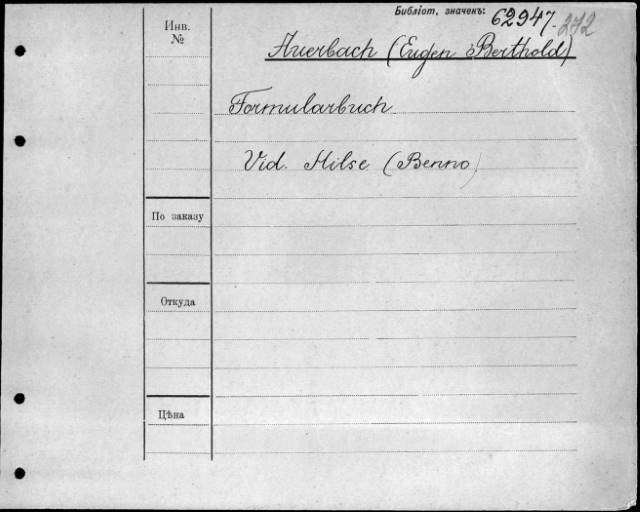 Библіот. значекъ: 62947.272
Инв.
№
Auerbach (Eugen Berthold)
Formularbuch
Vid. Hilse (Benno)
По заказу
Откуда
Цѣна